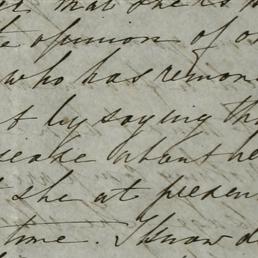 that one is
opinion of
who has remon
t by saying th
about he
she at presen
time. I know d